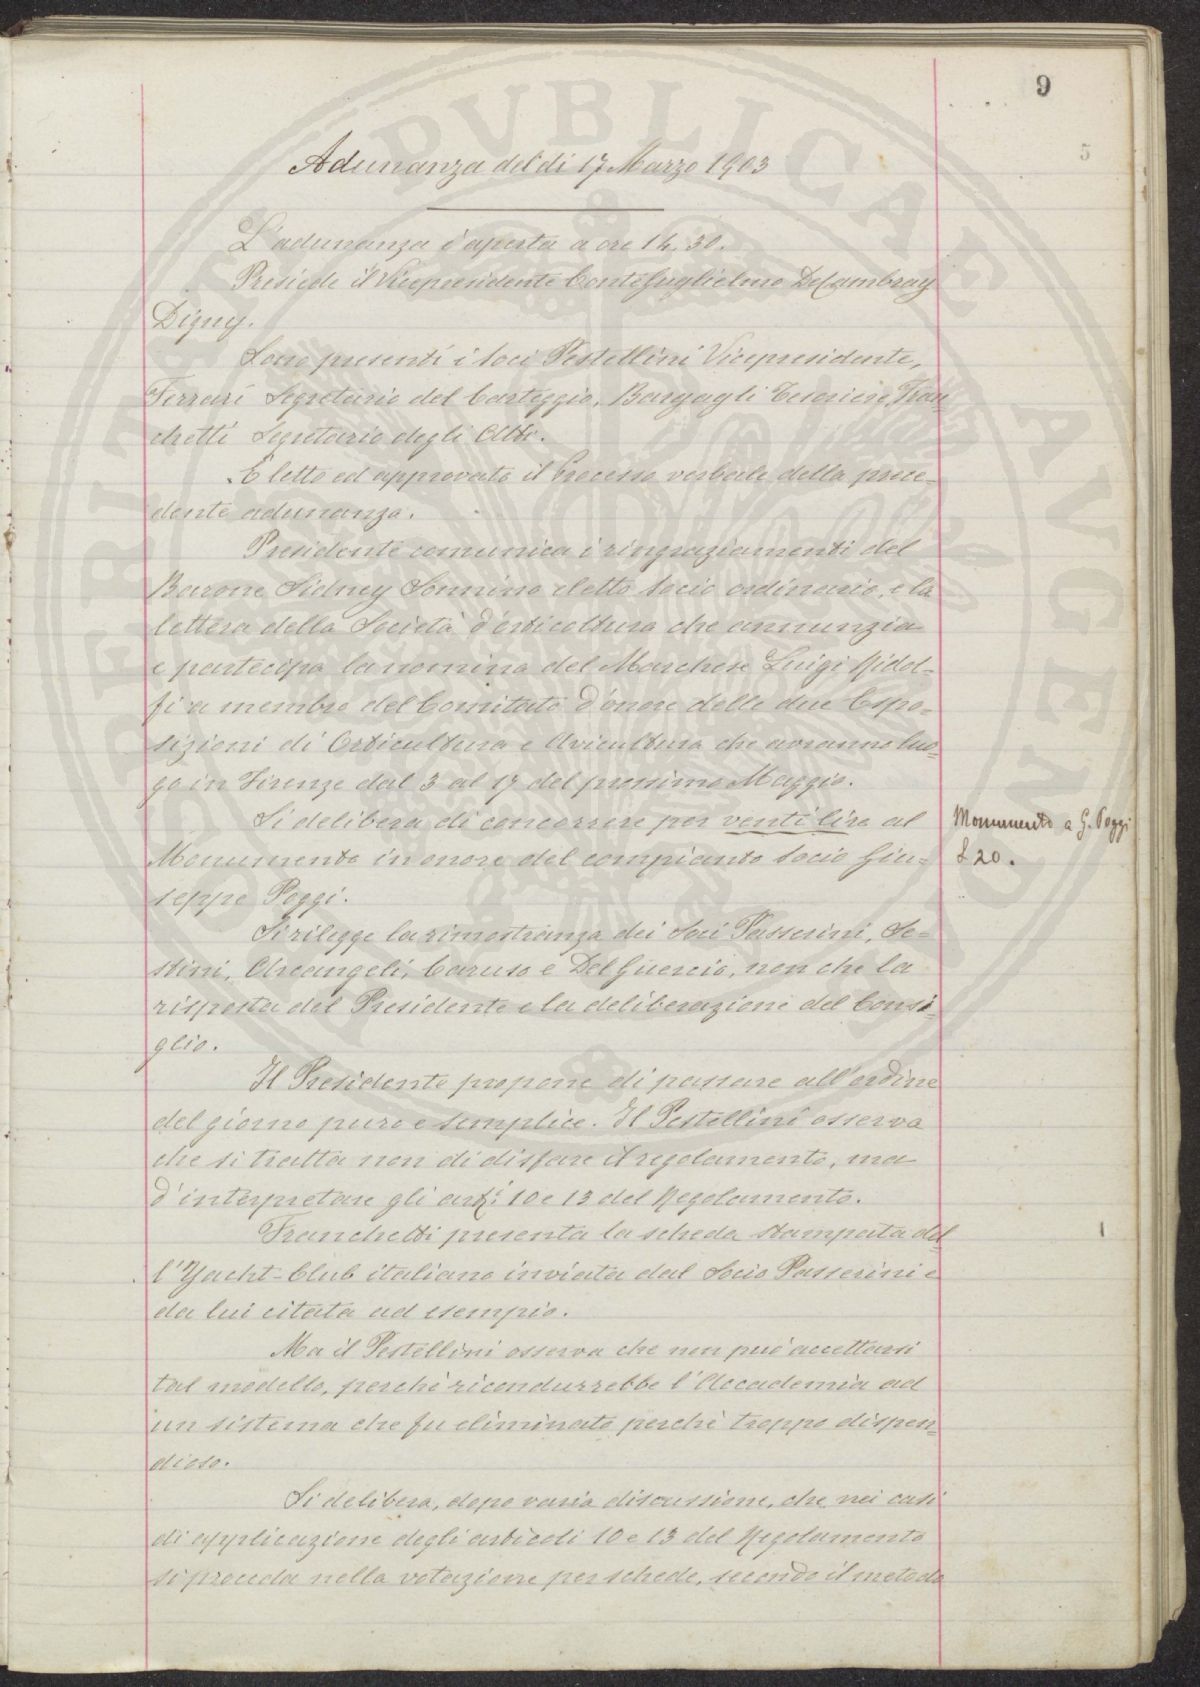 9
5
Adunanza del dì 17 Marzo 1903
L'adunanza è aperta a ore 14.30.
Presiede il Vicepresidente Conte Guglielmo De Cambray
Digny.
Sono presenti i Soci Pestellini Vicepresidente,
Ferrari Segretario del Carteggio, Bargagli Tesoriere, Fran-
chetti Segretario degli Atti.
È letto ed approvato il Processo verbale della prece-
dente adunanza.
Presidente comunica i ringraziamenti del
Barone Sidney Sonnino eletto Socio ordinario, e la
lettera della Società d'orticoltura che annunzia
e partecipa la nomina del Marchese Luigi Ridol-
fi a membro del Comitato d'onore delle due Espo-
sizioni di Orticultura e Avicultura che avranno luo-
go in Firenze dal 3 al 17 del prossimo Maggio.
Si delibera di concorrere per venti lire al
Monumento in onore del compianto Socio Giu-
seppe Poggi.
Monumento a G. Poggi
£ 20.
Si rilegge la rimostranza dei Soci Passerini, Se-
stini, Arcangeli, Caruso e Del Guercio, non che la
risposta del Presidente e la deliberazione del Consi-
glio.
Il Presidente propone di passare all'ordine
del giorno puro e semplice. Il Pestellini osserva
che si tratta non di disfare il regolamento, ma
d'interpretare gli art.i 10 e 13 del Regolamento.
Franchetti presenta la scheda stampata del-
l'Yacht-Club italiano inviata dal Socio Passerini e
da lui citata ad esempio.
Ma il Pestellini osserva che non può accettarsi
tal modello, perchè ricondurrebbe l'Accademia ad
un sistema che fu eliminato perchè troppo dispen-
dioso.
Si delibera, dopo varia discussione, che nei casi
di applicazione degli articoli 10 e 13 del Regolamento
si proceda nella votazione per schede, secondo il metodo
PVBLICAE
AVGENDAE